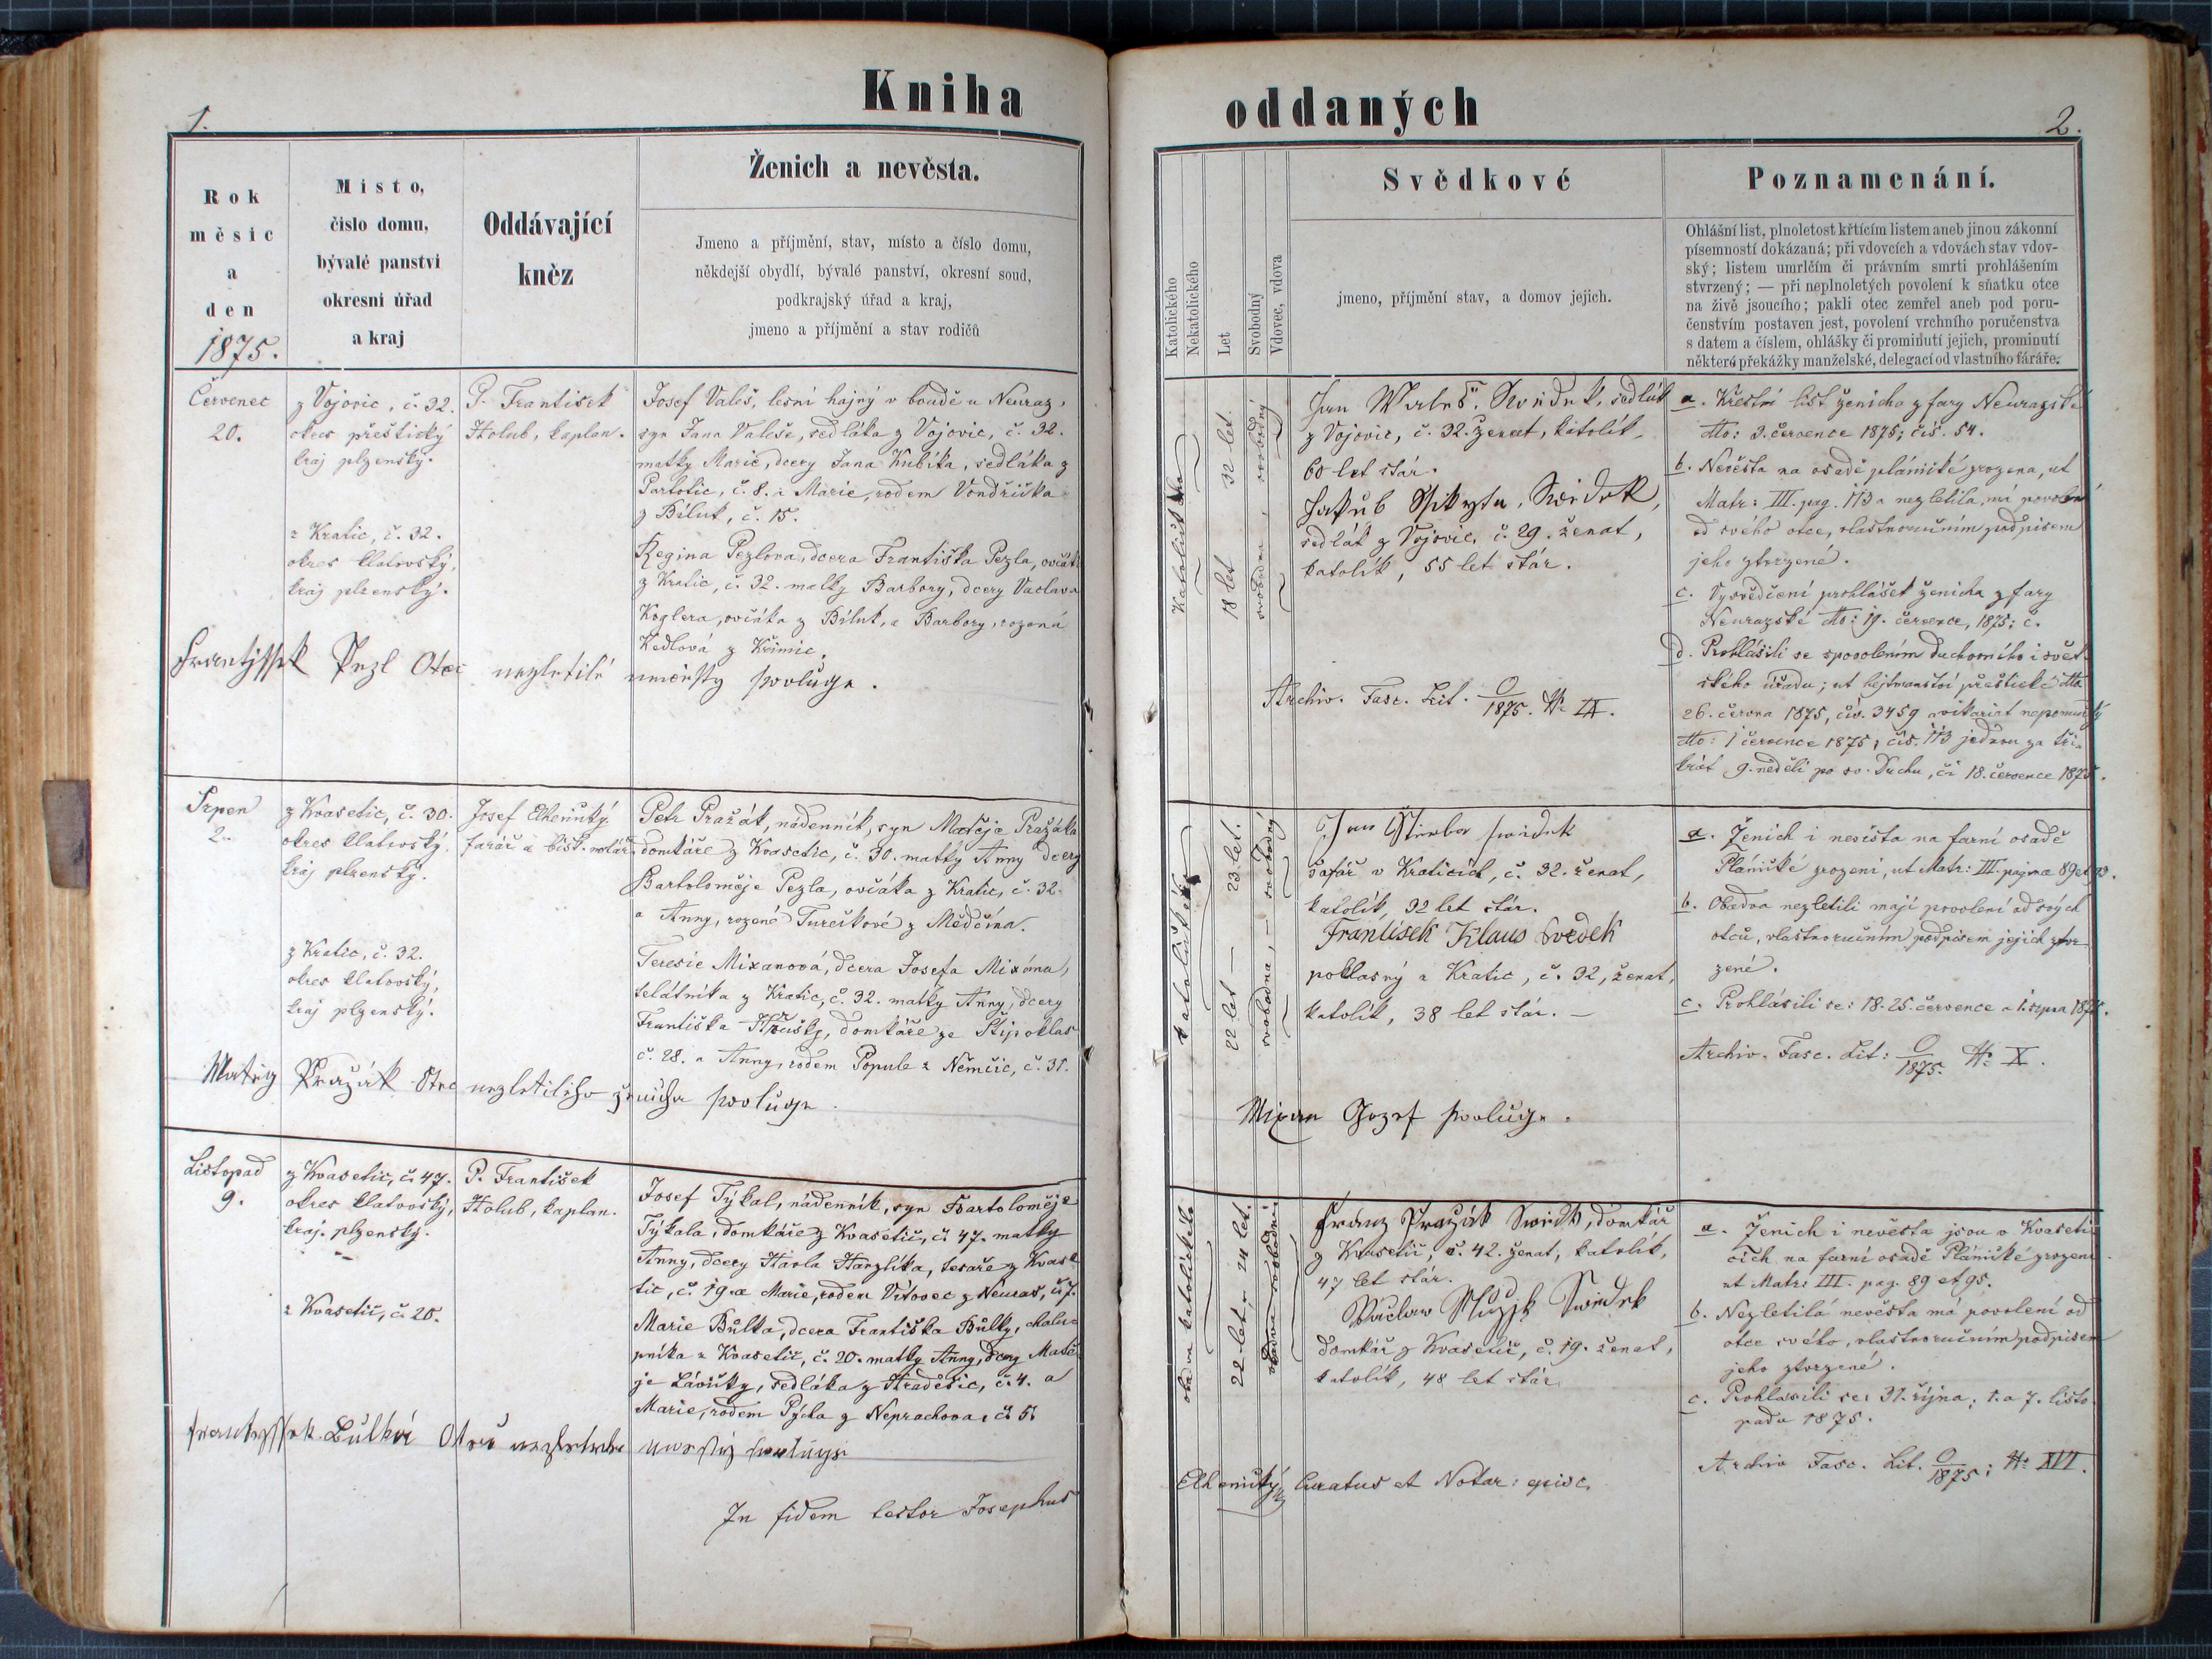 Kniha
1.
Rok
měsíc
a
den
1875.
Místo,
číslo domu,
bývalé panství
okresní úřad
a kraj
Oddávající
kněz
Ženich a nevěsta.
Jmeno a příjmění, stav, místo a číslo domu,
někdejší obydlí, bývalé panství, okresní soud,
podkrajský úřad a kraj,
jmeno a příjmění a stav rodičů
Červenec
20.
z Vojovic, č. 32.
okres přeštický
kraj plzenský.
z Kratic, č. 32.
okres klatovský,
kraj plzenský.
P. František
Holub, kaplan.
Josef Valeš, lesní hajný v boudě u Neuraz,
syn Jana Valeše, sedláka z Vojovic, č. 32.
matky Marie, dcery Jana Kubíka, sedláka z
Partotic, č. 8. a Marie, rodem Vondřička
z Bíluk, č. 15.
Regina Pezlova, dcera Františka Pezla, ovčáka
z Kratic, č. 32. matky Barbory, dcery Vaclava
Koglera, ovčáka z Bíluk, a Barbory, rozená
Kedlová z Křimic.
Frantyssek Pezl Otec nezletilé newěsty powoluge.
Srpen
2.
z Kvasetic, č. 30.
okres klatovský.
kraj plzenský.
z Kratic, č. 32.
okres klatovský,
kraj plzenský.
Josef Elhenický
farář a bisk. notář
Petr Pražák, nádenník, syn Matěje Pražáka
domkáře z Kvasetic, č. 30. matky Anny dcery
Bartoloměje Pezla, ovčáka z Kratic, č. 32.
a Anny, rozené Turečkové z Měděína.
Teresie Mixanová, dcera Josefa Mixána,
telátníka z Kratic, č. 32. matky Anny, dcery
Františka Hrušky, domkáře ze Štipoklas
č. 28. a Anny, rodem Popule z Němčic, č. 31.
Matěg Pražák Otec nezletilího ženicha powoluge.
Listopad
9.
z Kvasetic, č. 47.
okres klatovský,
kraj. plzenský.
z Kvasetic, č. 20.
P. František
Holub, kaplan.
Josef Týkal, nádenník, syn Bartoloměje
Týkala, domkáře z Kvasetic, č. 47. matky
Anny, dcery Karla Hanzlíka, tesaře z Kvase
tic, č. 19. a Marie, rodem Vítovec z Neuraz, č. 7.
Marie Bulka, dcera Františka Bulky, chalu-
pníka z Kvasetic, č. 20. matky Anny, dcery Matě-
je Lávičky, sedláka z Hradešic, č. 4. a
Marie, rodem Pýcha z Neprachova, č. 5.
Frantyssek Bulka Otec nezletile newěsty powoluge
In fidem testor Josephus
oddaných
2.
Katolického
Nekatolického
Let
Svobodný
Vdovec, vdova
Svědkové
jmeno, příjmění stav, a domov jejich.
Poznamenání.
Ohlášní list, plnoletost křtícím listem aneb jinou zákonní
písemností dokázaná; při vdovcích a vdovách stav vdov-
ský; listem umrlčím či právním smrti prohlášením
stvrzený; — při neplnoletých povolení k sňatku otce
na živě jsoucího; pakli otec zemřel aneb pod poru-
čenstvím postaven jest, povolení vrchního poručenstva
s datem a číslem, ohlášky či prominutí jejich, prominutí
některé překážky manželské, delegací od vlastního faráře.
18 let 32 let.
svobodna, svobodný
Jan Waleš. Swědek, sedlák
z Vojovic, č. 32. ženat, katolík,
60 let stár.
Jakub Swědek,
sedlák z Vojovic, č. 29. ženat,
katolík, 55 let stár.
Archiv. Fasc. Lit. O/1875. No IX.
a. Křestní list ženicha z fary Neurazské
dto: 3. července 1875; čís. 54.
b. Nevěsta na osadě plánické zrozena, ut
Matr: III. pag. 113 a nezletila, má povolení
od svého otce, vlastnoručním podpisem
jeho ztvrzené.
c. Vysvědčení prohlášek ženicha z fary
Neurazské dto: 19. července, 1875; č.
d. Prohlásili se s povolením duchovního i svět-
ského úřadu; ut hejtmanství přeštické dto
26. června 1875, čís. 3459 a vikariat nepomucký
dto: 1 července 1875, čís. 113 jednou za tři-
krát 9. neděli po sv. Duchu, či 18. července 1875.
katolického
22 let — 23 let.
svobodna, — svobodný
Jan swědek
šafář v Kraticích, č. 32. ženat,
katolík, 32 let stár.
František Klaus svědek
poklasný z Kratic, č. 32, ženat,
katolík, 38 let stár. —
Mixan Jozef powoluge.
a. Ženich i nevěsta na farní osadě
Plánické zrozeni, ut Matr: III. pagina 89 et 93.
b. Obadva nezletilí mají povolení od svých
otců, vlastnoručním podpisem jejich ztvr-
zené.
c. Prohlásili se: 18. 25. července a 1. srpna 1875.
Archiv. Fasc. Lit: O/1875. No X.
oba katolického
22 let a 24 let.
obadva svobodní
Franz Pražák Swědek, domkář
z Kvasetic, č. 42. ženat, katolík,
47 let stár.
Wáclaw Swědek
domkář z Kvasetic, č. 19. ženat,
katolík, 48 let stár.
Elhenický, Curatus et Notar: episc.
a. Ženich i nevěsta jsou v Kvaseti-
cích na farní osadě Plánické zrozeni
ut Matr: III. pag. 89 et 95.
b. Nezletilá nevěsta má povolení od
otce svého, vlastnoručním podpisem
jeho ztvrzené.
c. Prohlásili se: 31. října; 1. a 7. listo-
padu 1875.
Archiv Fasc. Lit. O/1875; No XVI.